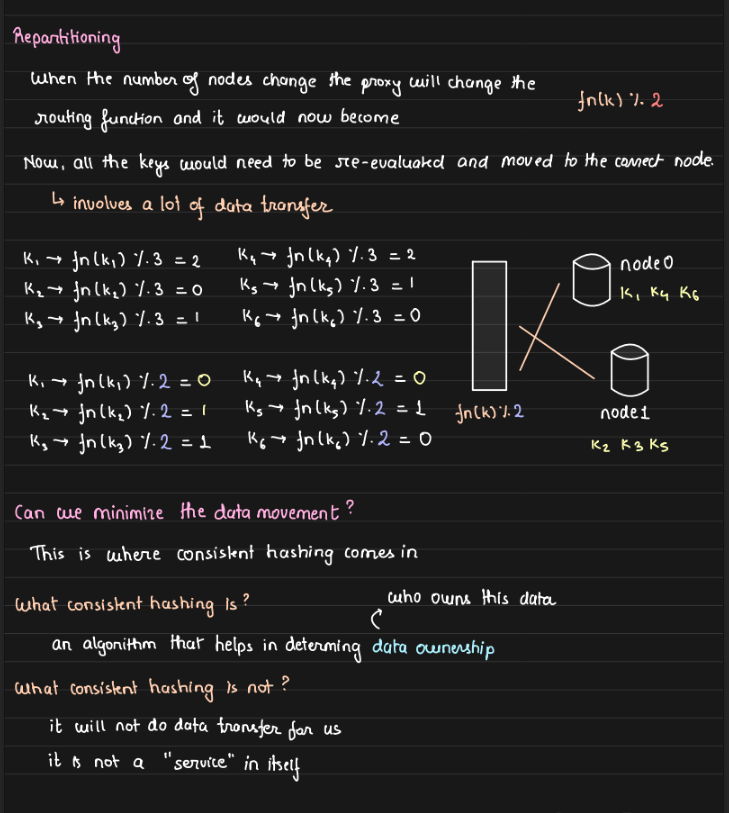 Repartitioning
When the number of nodes change the proxy will change the
routing function and it would now become
fn(k) % 2
Now, all the keys would need to be re-evaluated and moved to the correct node.
↳ involves a lot of data transfer
K₁ → fn(k₁) % 3 = 2
K₂ → fn(k₂) % 3 = 0
K₃ → fn(k₃) % 3 = 1
K₄ → fn(k₄) % 3 = 2
K₅ → fn(k₅) % 3 = 1
K₆ → fn(k₆) % 3 = 0
K₁ → fn(k₁) % 2 = 0
K₂ → fn(k₂) % 2 = 1
K₃ → fn(k₃) % 2 = 1
K₄ → fn(k₄) % 2 = 0
K₅ → fn(k₅) % 2 = 1
K₆ → fn(k₆) % 2 = 0
fn(k) % 2
node 0
K₁ K₄ K₆
node 1
K₂ K₃ K₅
Can we minimize the data movement?
This is where consistent hashing comes in
What consistent hashing is?
who owns this data
an algorithm that helps in determing data ownership
What consistent hashing is not?
it will not do data transfer for us
it is not a "service" in itself